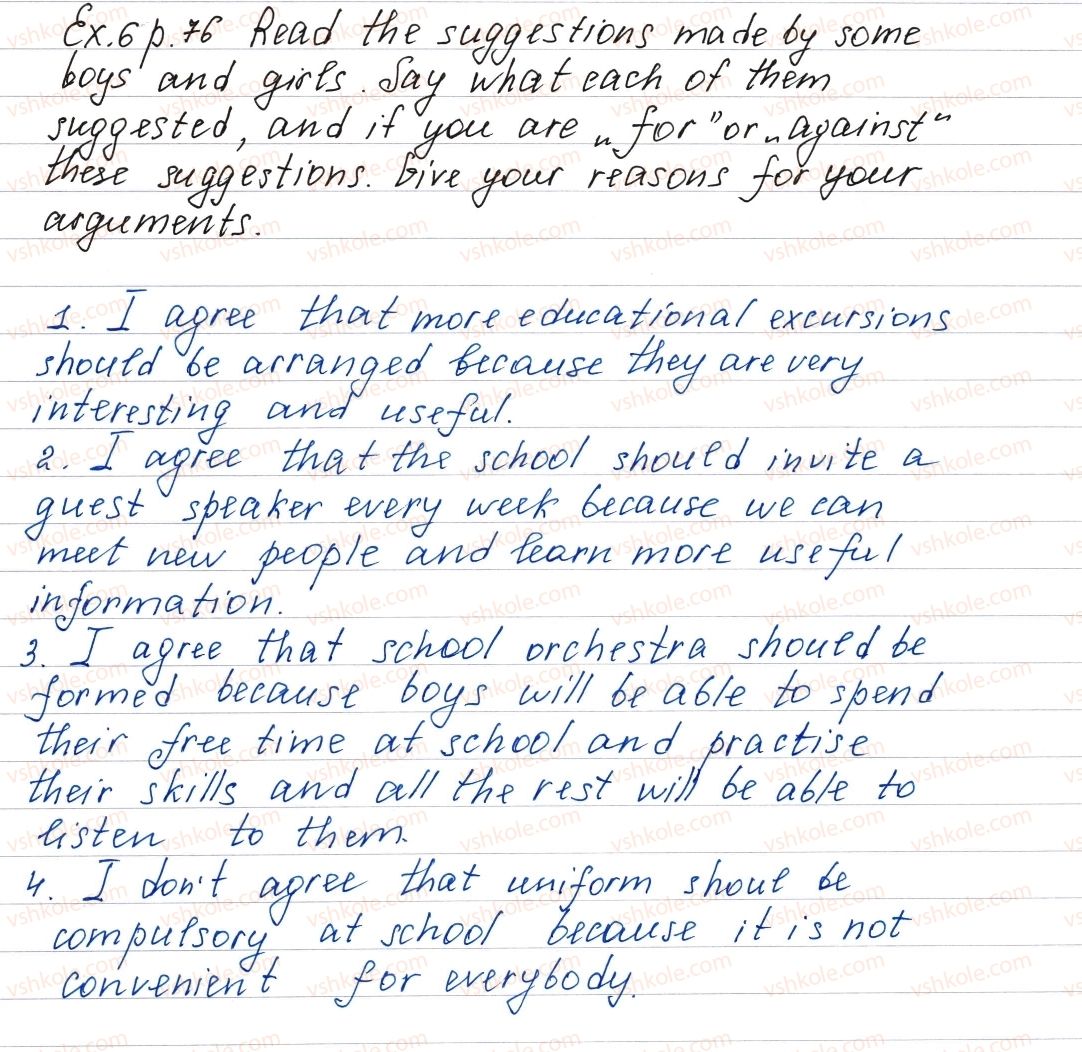 Ex.6 p.76 Read the suggestions made by some
boys and girls. Say what each of them
suggested, and if you are „for" or „against"
these suggestions. Give your reasons for your
arguments.
1. I agree that more educational excursions
should be arranged because they are very
interesting and useful.
2. I agree that the school should invite a
guest speaker every week because we can
meet new people and learn more useful
information.
3. I agree that school orchestra should be
formed because boys will be able to spend
their free time at school and practise
their skills and all the rest will be able to
listen to them.
4. I don't agree that uniform shoul be
compulsory at school because it is not
convenient for everybody.
vshkole.com